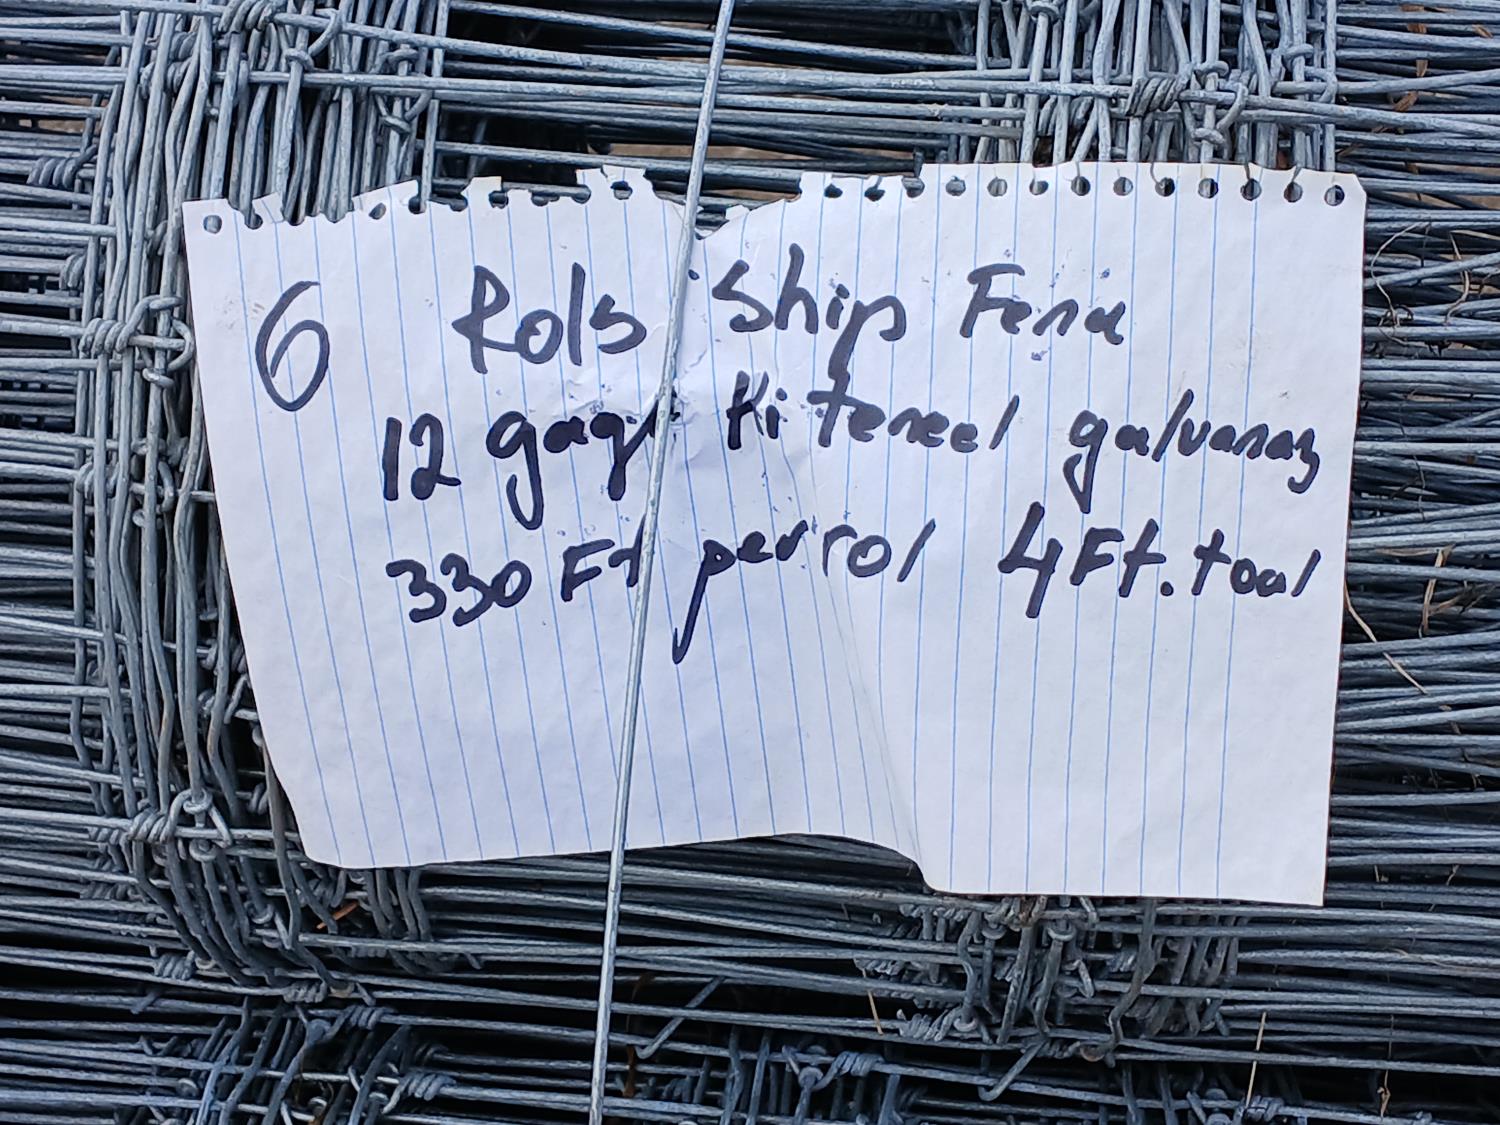 6 Rols Ship Fenc
12 gage Hi teneel galvanaz
330 Ft per rol 4 Ft. toal